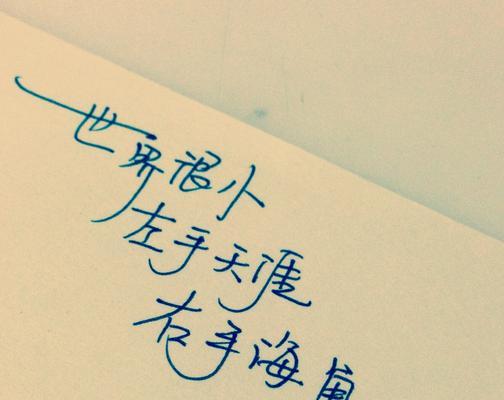 世界很小
左手天涯
右手海角